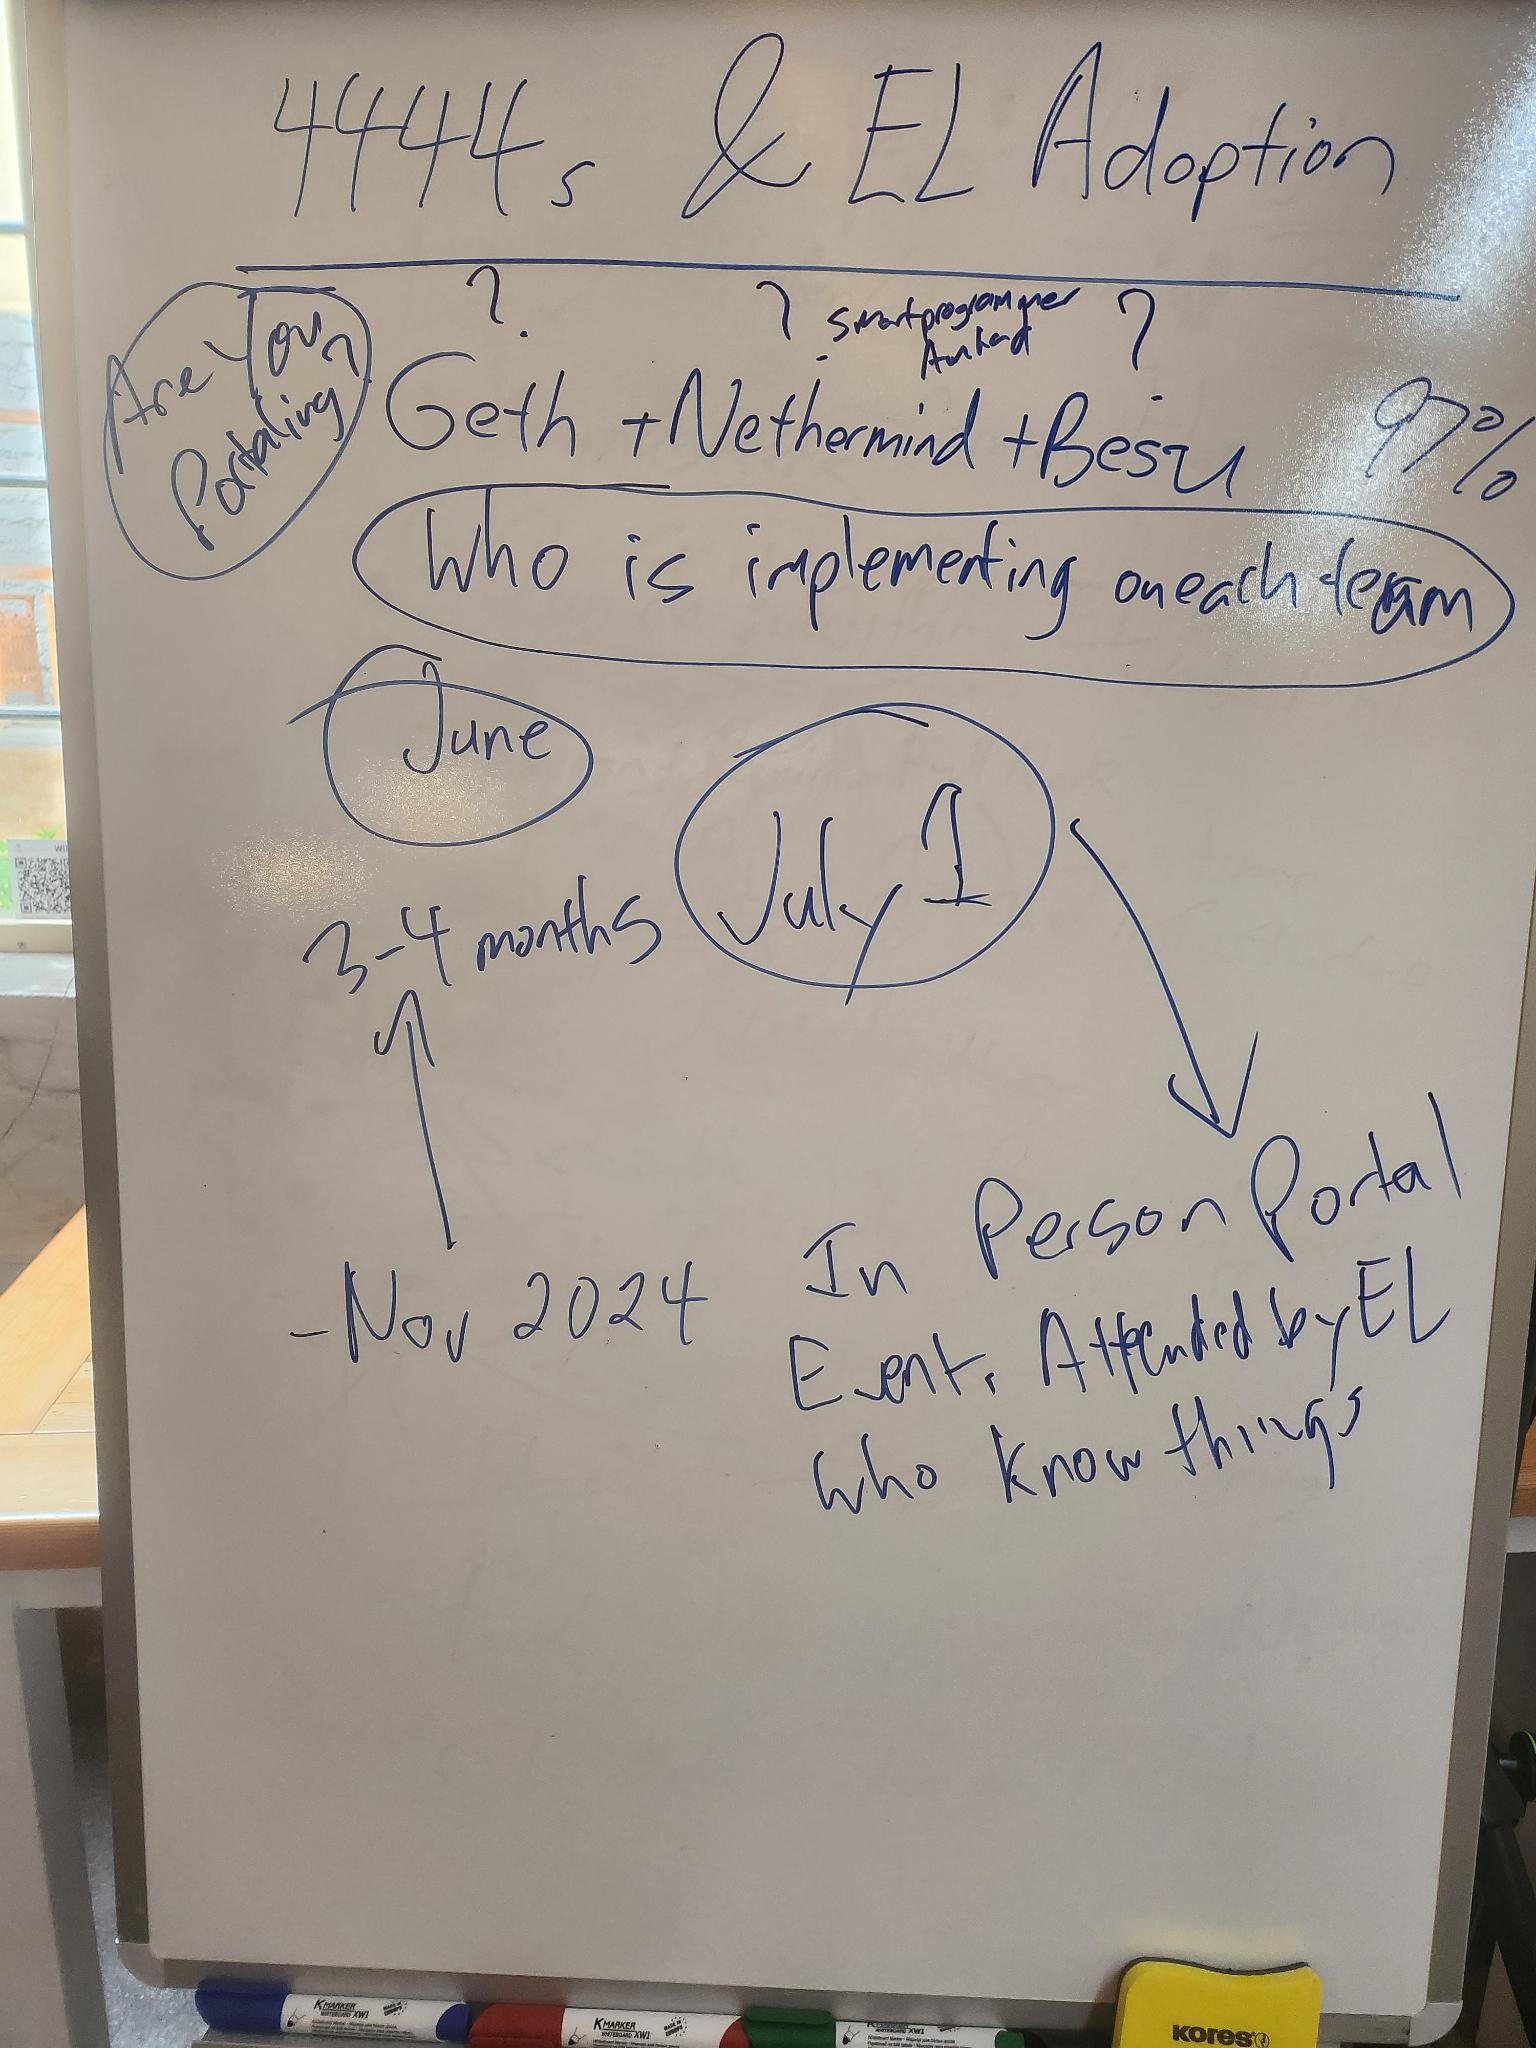 4444s & EL Adoption
Are You
Portaling?
? ? ?
smartprogrammer
Geth + Nethermind + Besu 97%
Who is implementing on each team
June
July 1
3-4 months
- Nov 2024
In Person Portal
Event, Attended by EL
who know things
KMARKER
WHITEBOARD XW1
MADE IN EUROPE
KMARKER
WHITEBOARD XW1
MADE IN EUROPE
KMARKER
WHITEBOARD XW1
KORES